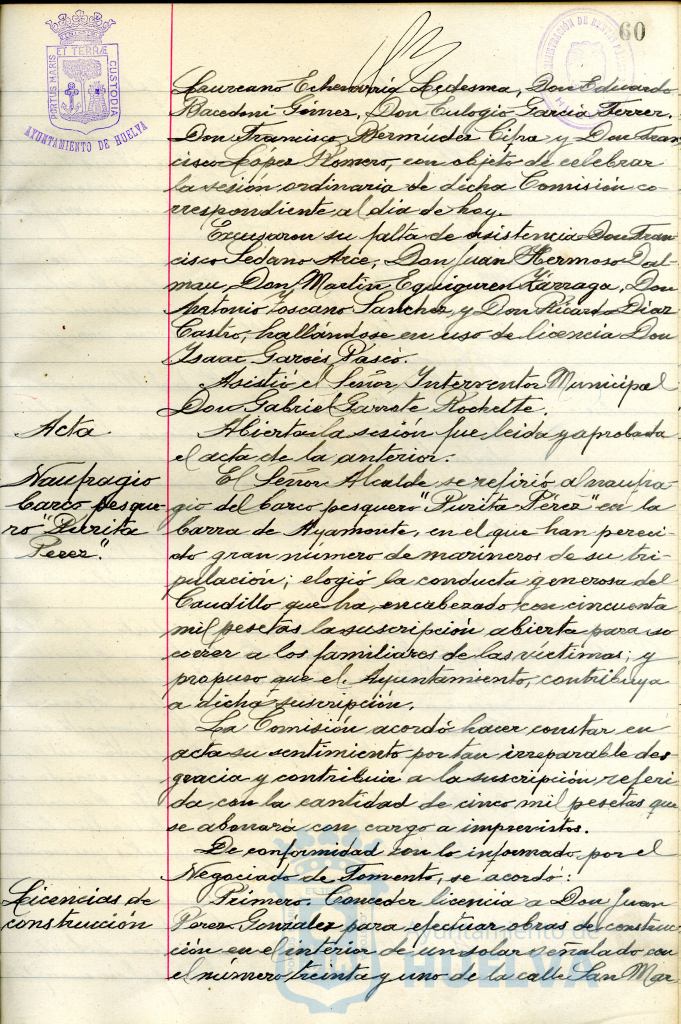 60
PORTUS MARIS ET TERRÆ CUSTODIA
AYUNTAMIENTO DE HUELVA
Laureano Echevarría Ledesma, Don Eduardo
Bacedoni Gómez, Don Eulogio García Ferrer,
Don Francisco Bermúdez Cipa y Don Fran
cisco López Romero, con objeto de celebrar
la sesión ordinaria de dicha Comisión co-
rrespondiente al día de hoy.
Excusaron su falta de asistencia Don Fran
cisco Sedano Arce, Don Juan Hermoso Dal
mau, Don Martín Eguiguren Lárraga, Don
Antonio Toscano Sánchez, y Don Ricardo Díaz
Castro, hallándose en uso de licencia Don
Isaac Garcés Pascó.
Asistió el Señor Interventor Municipal
Don Gabriel Garrote Rochette.
Acta
Abierta la sesión fue leida y aprobada
el acta de la anterior.
Naufragio
barco pesque-
ro "Purita
Pérez".
El Señor Alcalde se refirió al naufra-
gio del barco pesquero "Purita Pérez" en la
barra de Ayamonte, en el que han pereci-
do gran número de marineros de su tri-
pulación; elogió la conducta generosa del
Caudillo que ha encabezado con cincuenta
mil pesetas la suscripción abierta para so
correr a los familiares de las víctimas; y
propuso que el Ayuntamiento, contribuya
a dicha suscripción.
La Comisión acordó hacer constar en
acta su sentimiento por tan irreparable des
gracia y contribuir a la suscripción referi
da, con la cantidad de cinco mil pesetas que
se abonará con cargo a imprevistos.
De conformidad con lo informado por el
Negociado de Fomento, se acordó:
Licencias de
construcción
Primero. Conceder licencia a Don Juan
Perez González para efectuar obras de construc
ción en el interior de un solar señalado con
el número treinta y uno de la calle San Mar-
Ayuntamiento de
HUELVA